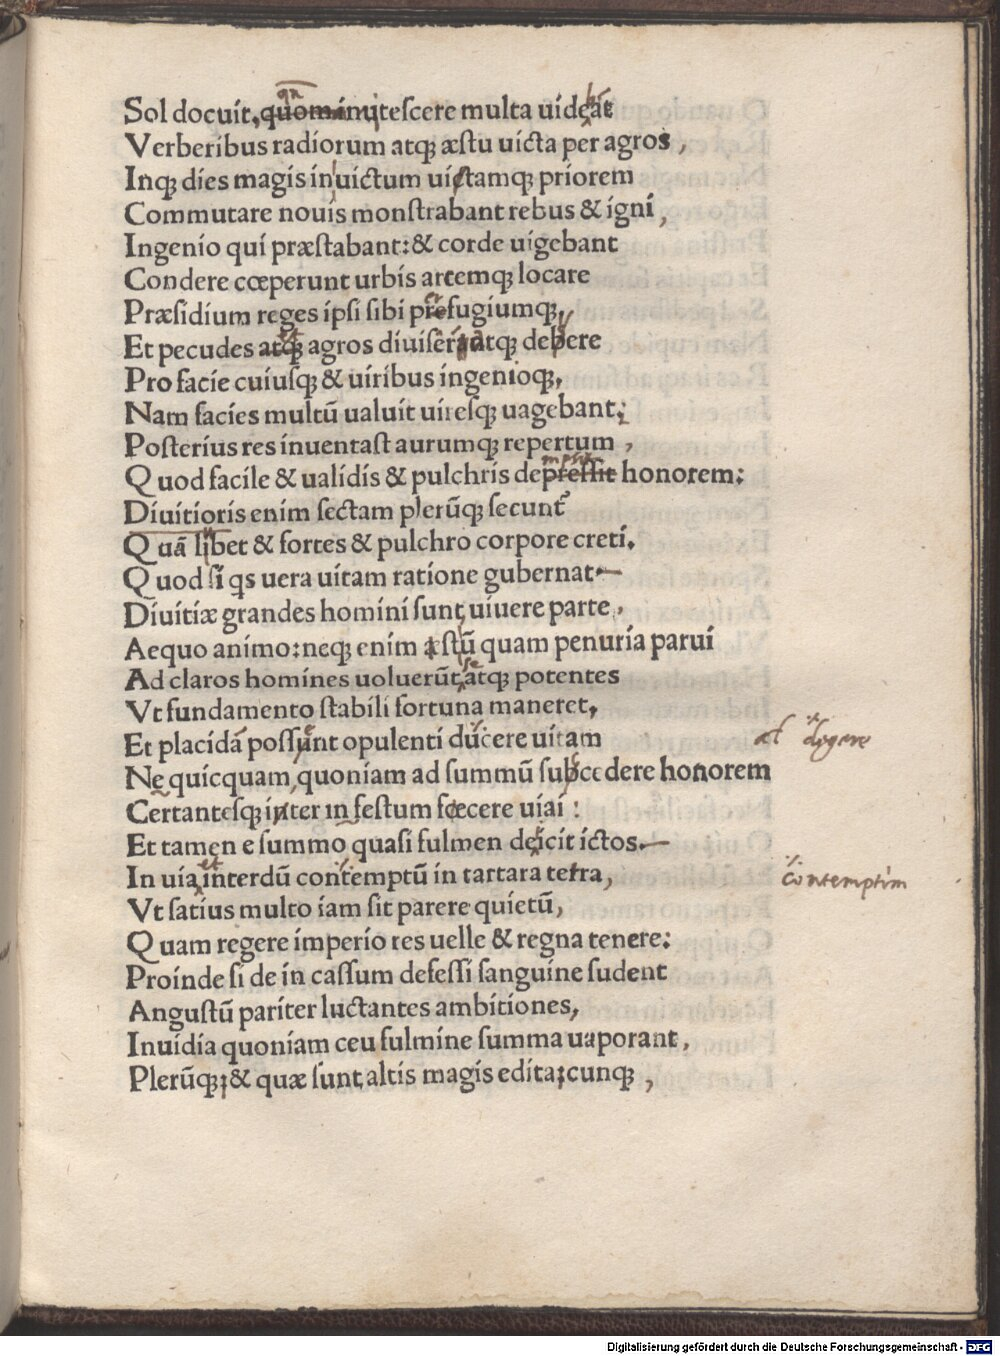 Sol docuit, quominuteſcere multa uideat
Verberibus radiorum atq; æſtu uicta per agros,
Inq; dies magis inuictum uictamq; priorem
Commutare nouis monſtrabant rebus & igni,
Ingenio qui præſtabant: & corde uigebant
Condere cœperunt urbis artemq; locare
Præſidium reges ipſi ſibi prefugiumq;,
Et pecudes atq; agros diuiſer atq; debere
Pro facie cuiuſq; & uiribus ingenioq;,
Nam facies multū ualuit uireſq; uagebant;
Poſterius res inuentaſt aurumq; repertum,
Quod facile & ualidis & pulchris depreſſit honorem:
Diuitioris enim ſectam plerūq; ſecunt
Quā libet & fortes & pulchro corpore creti.
Quod ſi qs uera uitam ratione gubernat
Diuitiæ grandes homini ſunt, uiuere parte,
Aequo animo: neq; enim eſtū quam penuria parui
Ad claros homines uoluerūt, ſe atq; potentes
Vt fundamento ſtabili fortuna maneret,
Et placidā poſſunt opulenti ducere uitam
al degere
Ne quicquam, quoniam ad ſummū ſubcedere honorem
Certanteſq; inter in feſtum fœcere uiai:
Et tamen e ſummo quaſi fulmen deicit ictos.
In uia et interdū contemptū in tartara tetra,
contemptim
Vt ſatius multo iam ſit parere quietū,
Quam regere imperio res uelle & regna tenere:
Proinde ſi de in caſſum defeſſi ſanguine ſudent
Anguſtū pariter luctantes ambitiones,
Inuidia quoniam ceu fulmine ſumma uaporant,
Plerūq;; & quæ ſunt, altis magis edita; cunq;,
Digitalisierung gefördert durch die Deutsche Forschungsgemeinschaft - DFG